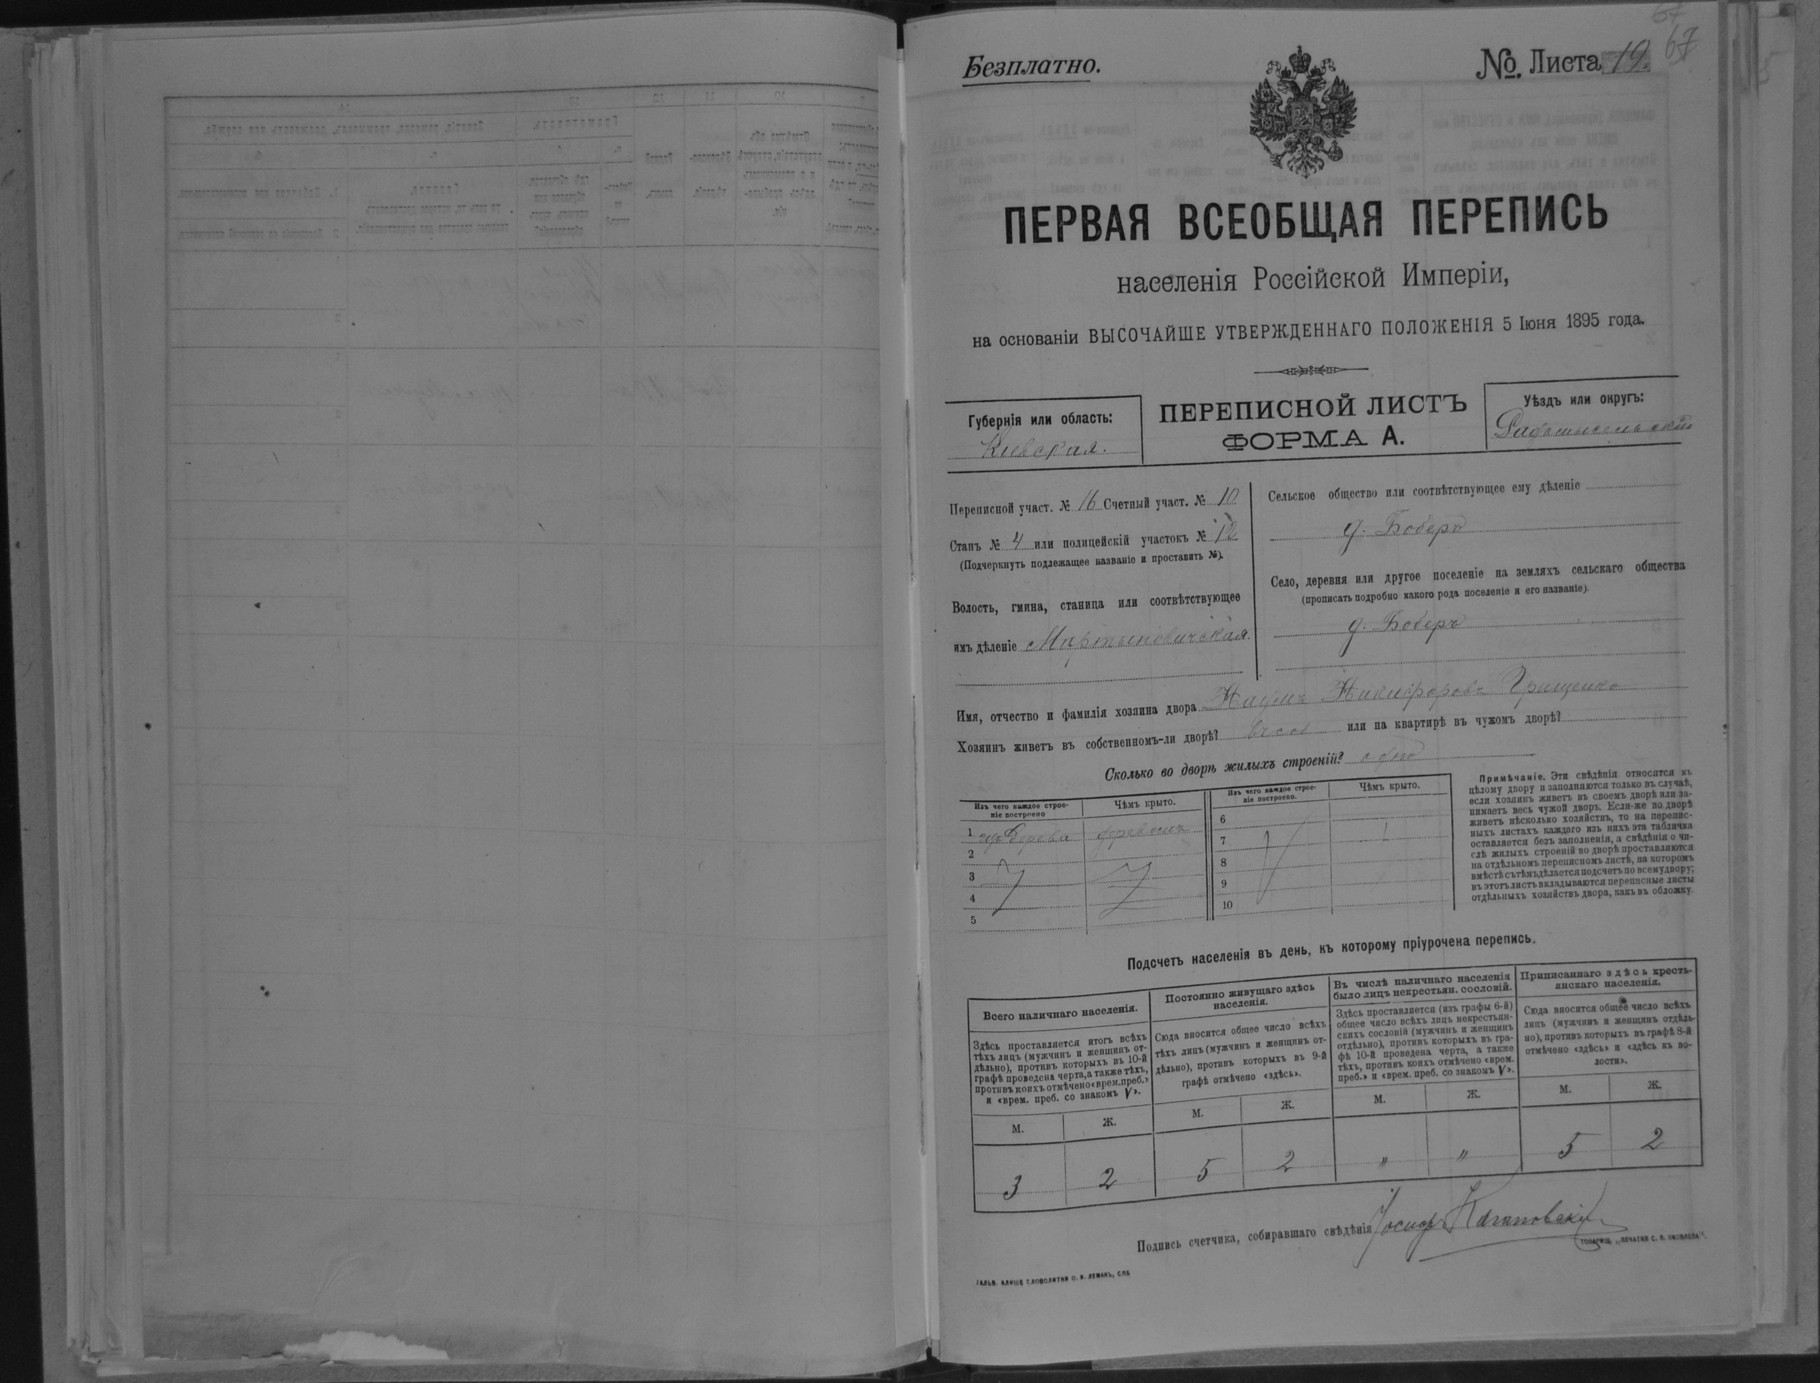 67
67
Безплатно.
№. Листа 19.
ПЕРВАЯ ВСЕОБЩАЯ ПЕРЕПИСЬ
населенія Россійской Имперіи,
на основаніи ВЫСОЧАЙШЕ УТВЕРЖДЕННАГО ПОЛОЖЕНІЯ 5 Іюня 1895 года.
Губернія или область:
Кіевская.
ПЕРЕПИСНОЙ ЛИСТЪ
ФОРМА А.
Уѣздъ или округъ:
Переписной участ. № 16 Счетный участ. № 10
Станъ № 4 или полицейскій участокъ № 12
(Подчеркнуть подлежащее названіе и проставить №).
Волость, гмина, станица или соотвѣтствующее
имъ дѣленіе Мартыновичская.
Сельское общество или соотвѣтствующее ему дѣленіе
д. Боберъ
Село, деревня или другое поселеніе на земляхъ сельскаго общества
(прописать подробно какого рода поселеніе и его названіе).
д. Боберъ
Имя, отчество и фамилія хозяина двора Наумъ Никифоровъ Грищенко
Хозяинъ живетъ въ собственномъ-ли дворѣ? или на квартирѣ въ чужомъ дворѣ?
Сколько во дворѣ жилыхъ строеній? одно
Изъ чего каждое строе-
ніе построено
Чѣмъ крыто.
Изъ чего каждое строе-
ніе построено.
Чѣмъ крыто.
1 изъ дерева деревомъ
2
3
4
5
6
7
8
9
10
Примѣчаніе. Эти свѣдѣнія относятся къ
цѣлому двору и заполняются только въ случаѣ,
если хозяинъ живетъ въ своемъ дворѣ или за-
нимаетъ весь чужой дворъ. Если-же во дворѣ
живетъ нѣсколько хозяйствъ, то на перепис-
ныхъ листахъ каждаго изъ нихъ эта табличка
оставляется безъ заполненія, а свѣдѣнія о чи-
слѣ жилыхъ строеній во дворѣ проставляются
на отдѣльномъ переписномъ листѣ, на которомъ
вмѣстѣ съ тѣмъ дѣлается подсчетъ по всему двору;
въ этотъ листъ вкладываются переписные листы
отдѣльныхъ хозяйствъ двора, какъ въ обложку.
Подсчетъ населенія въ день, къ которому пріурочена перепись.
Всего наличнаго населенія.
Здѣсь проставляется итогъ всѣхъ
тѣхъ лицъ (мужчинъ и женщинъ от-
дѣльно), противъ которыхъ въ 10-й
графѣ проведена черта, а также тѣхъ,
противъ коихъ отмѣчено «врем. преб.»
и «врем. преб. со знакомъ V».
Постоянно живущаго здѣсь
населенія.
Сюда вносится общее число всѣхъ
тѣхъ лицъ (мужчинъ и женщинъ от-
дѣльно), противъ которыхъ въ 9-й
графѣ отмѣчено «здѣсь».
Въ числѣ наличнаго населенія
было лицъ некрестьян. сословій.
Здѣсь проставляется (изъ графы 6-й)
общее число всѣхъ лицъ некрестьян-
скихъ сословій (мужчинъ и женщинъ
отдѣльно), противъ которыхъ въ гра-
фѣ 10-й проведена черта, а также
тѣхъ, противъ коихъ отмѣчено «врем.
преб.» и «врем. преб. со знакомъ V».
Приписаннаго здѣсь кресть-
янскаго населенія.
Сюда вносится общее число всѣхъ
лицъ (мужчинъ и женщинъ отдѣль-
но), противъ которыхъ въ графѣ 8-й
отмѣчено «здѣсь» и «здѣсь въ во-
лости».
М. Ж. М. Ж. М. Ж. М. Ж.
3 2 5 2 „ „ 5 2
Подпись счетчика, собиравшаго свѣдѣнія